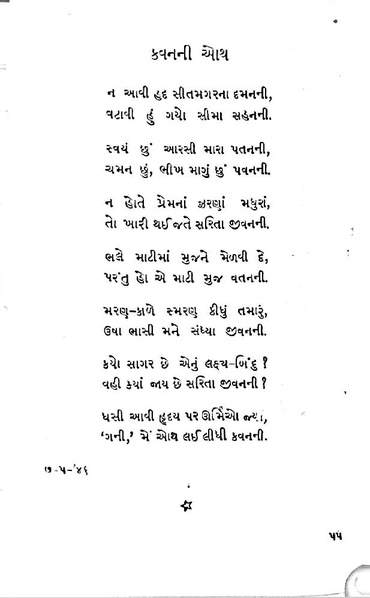 કવનની ઓથ
ન આવી હદ સીતમગરના દમનની,
વટાવી હું ગયો સીમા સહનની.
સ્વયં છું આરસી મારા પતનની,
ચમન છું, ભીખ માગું છું પવનની.
ન હોતે પ્રેમનાં ઝરણાં મધુરાં,
તો ખારી થઈ જતે સરિતા જીવનની.
ભલે માટીમાં મુજને મેળવી દે,
પરંતુ હો એ માટી મુજ વતનની.
મરણ-કાળે સ્મરણ કીધું તમારું,
ઉષા ભાસી મને સંધ્યા જીવનની.
કયો સાગર છે એનું લક્ષ્ય-બિંદુ ?
વહી ક્યાં જાય છે સરિતા જીવનની ?
ધસી આવી હૃદય પર ઊર્મિઓ જ્યાં,
‘ગની,’ મેં ઓથ લઈ લીધી કવનની.
૭-૫-’૪૬
૫૫